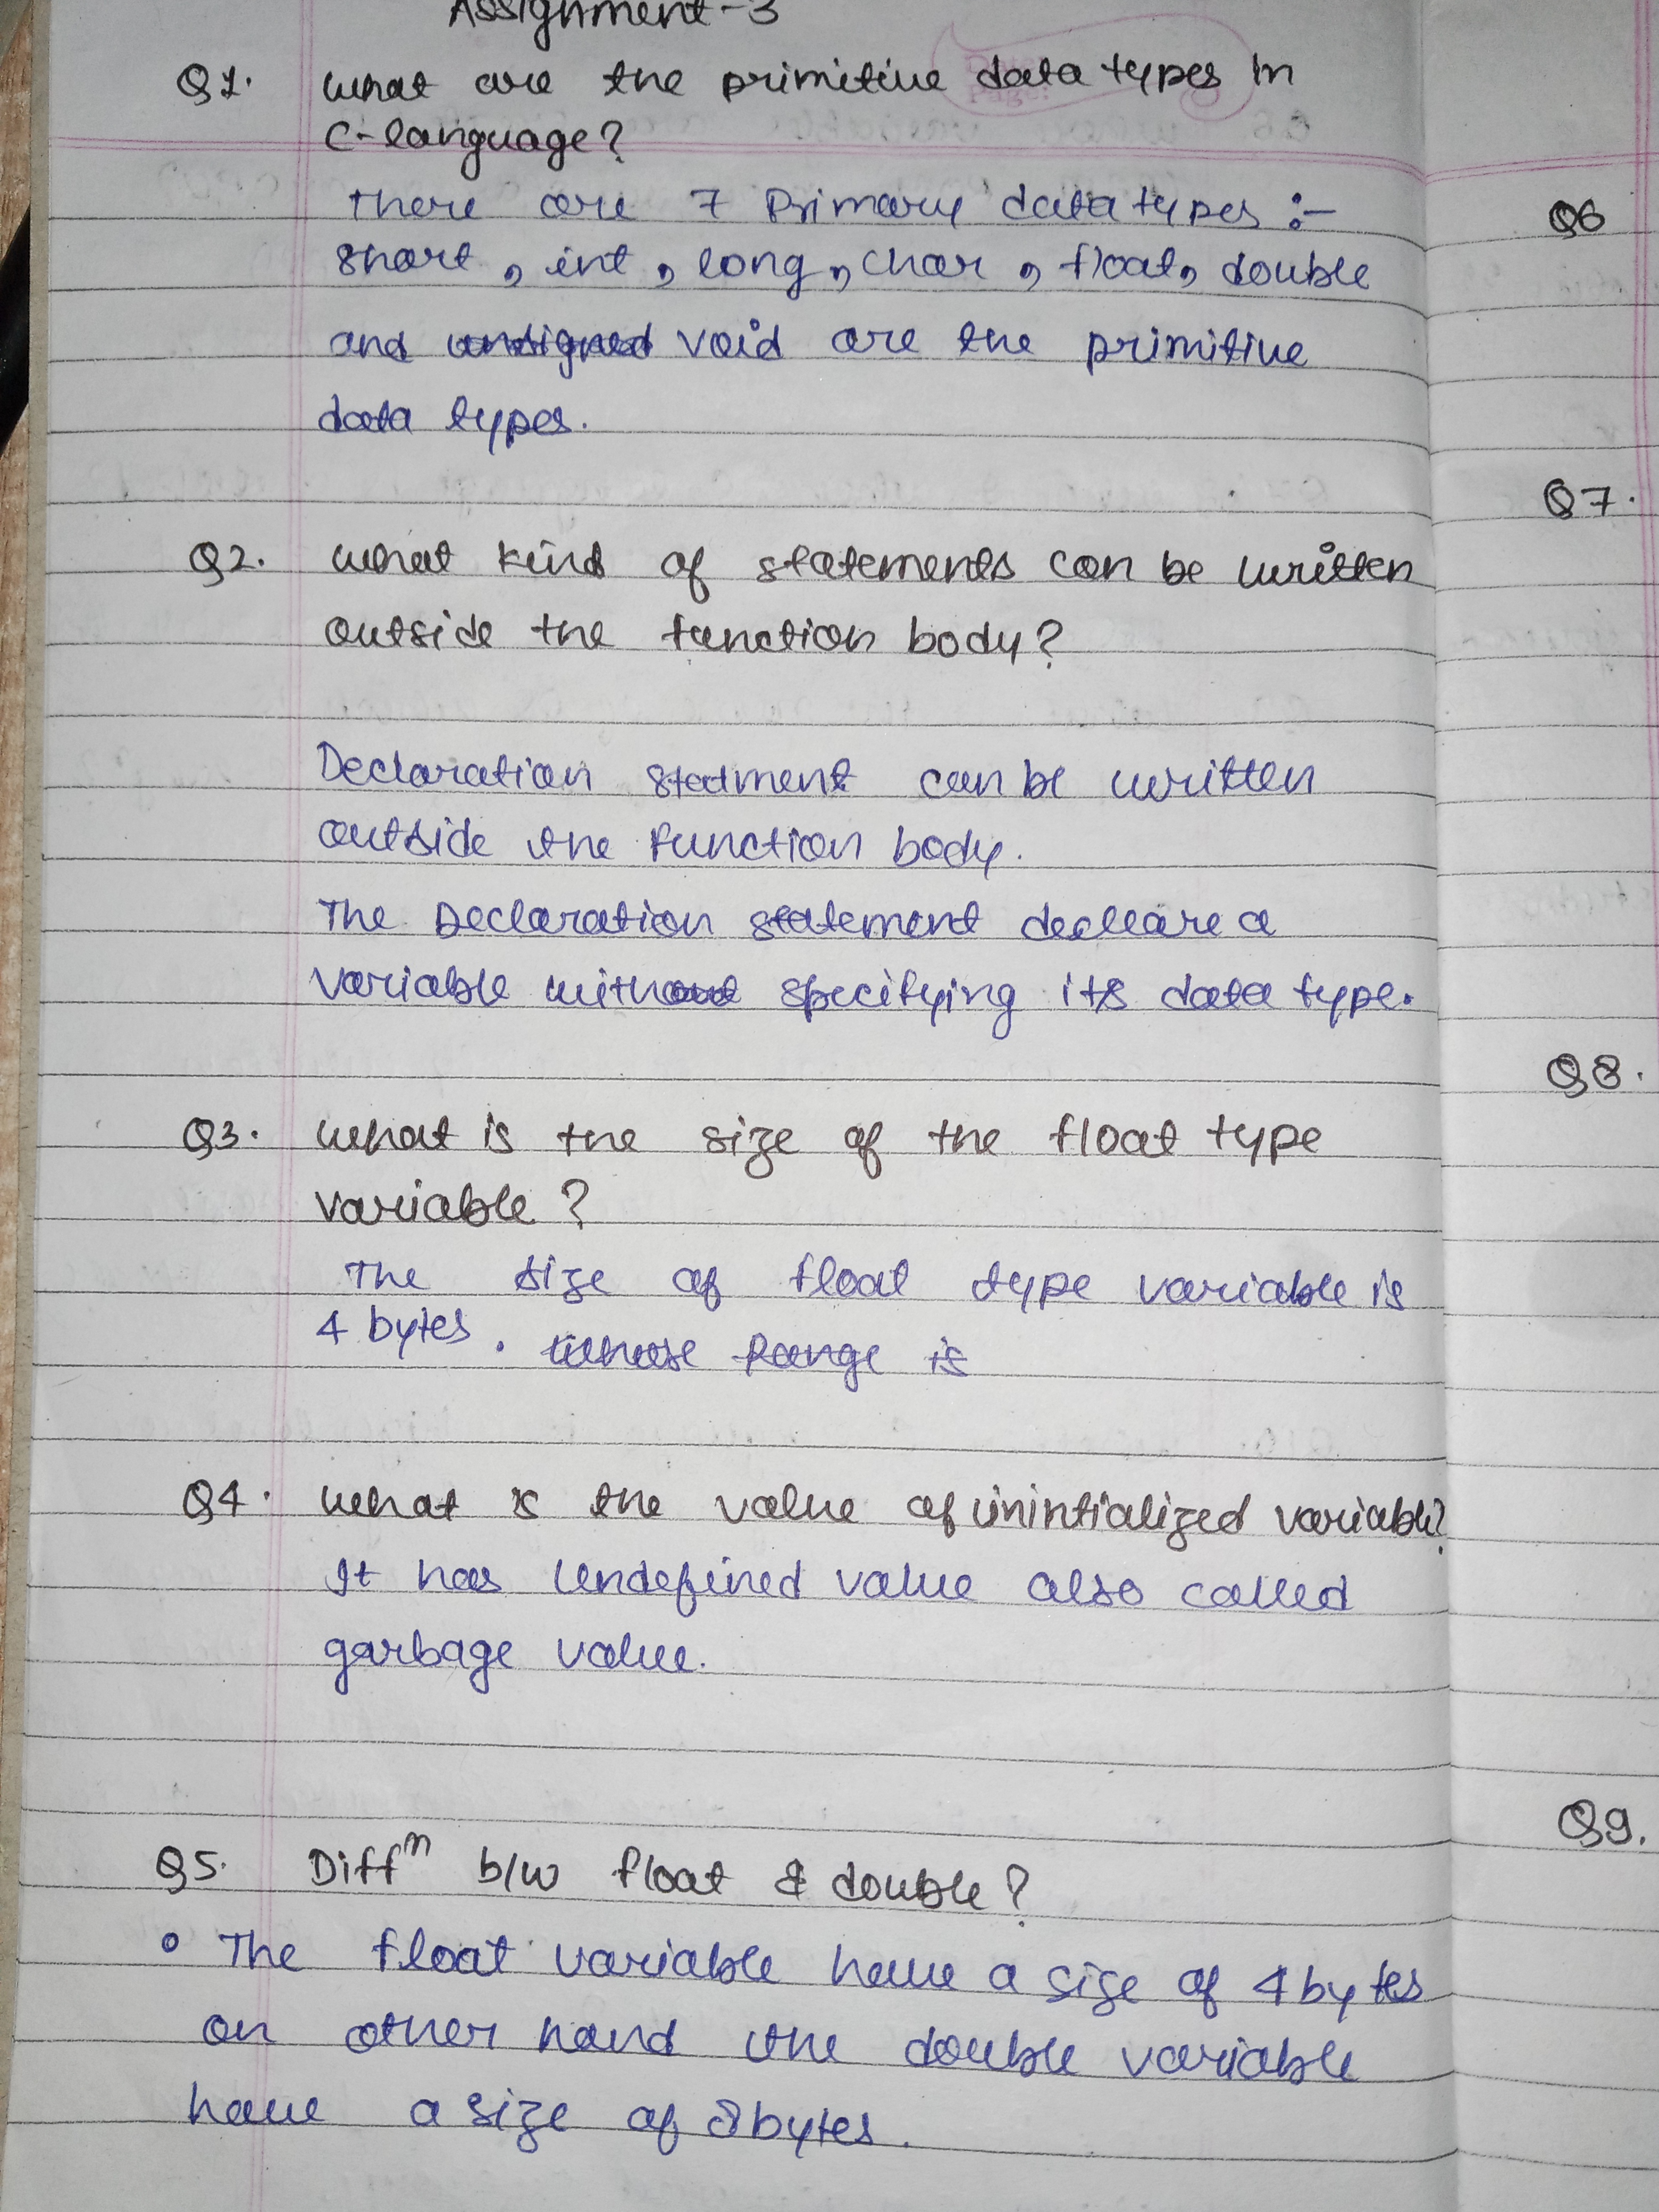 Assignment-3
Q1. What are the primitive data types in
C-language?
There are 7 Primary data types :-
short, int, long, char, float, double
and unsigned void are the primitive
data types.
Q2. What kind of statements can be written
outside the function body?
Declaration statment can be written
outside the function body.
The Declaration statement decleare a
variable without specifying its data type.
Q3. What is the size of the float type
variable?
The size of float type variable is
4 bytes. whose Range is
Q4. What is the value of unintialized variable?
It has Undefined value also called
garbage value.
Q5. Diffⁿ b/w float & double?
• The float variable have a size of 4 bytes
on other hand the double variable
have a size of 8 bytes.
Q6
Q7.
Q8.
Q9.